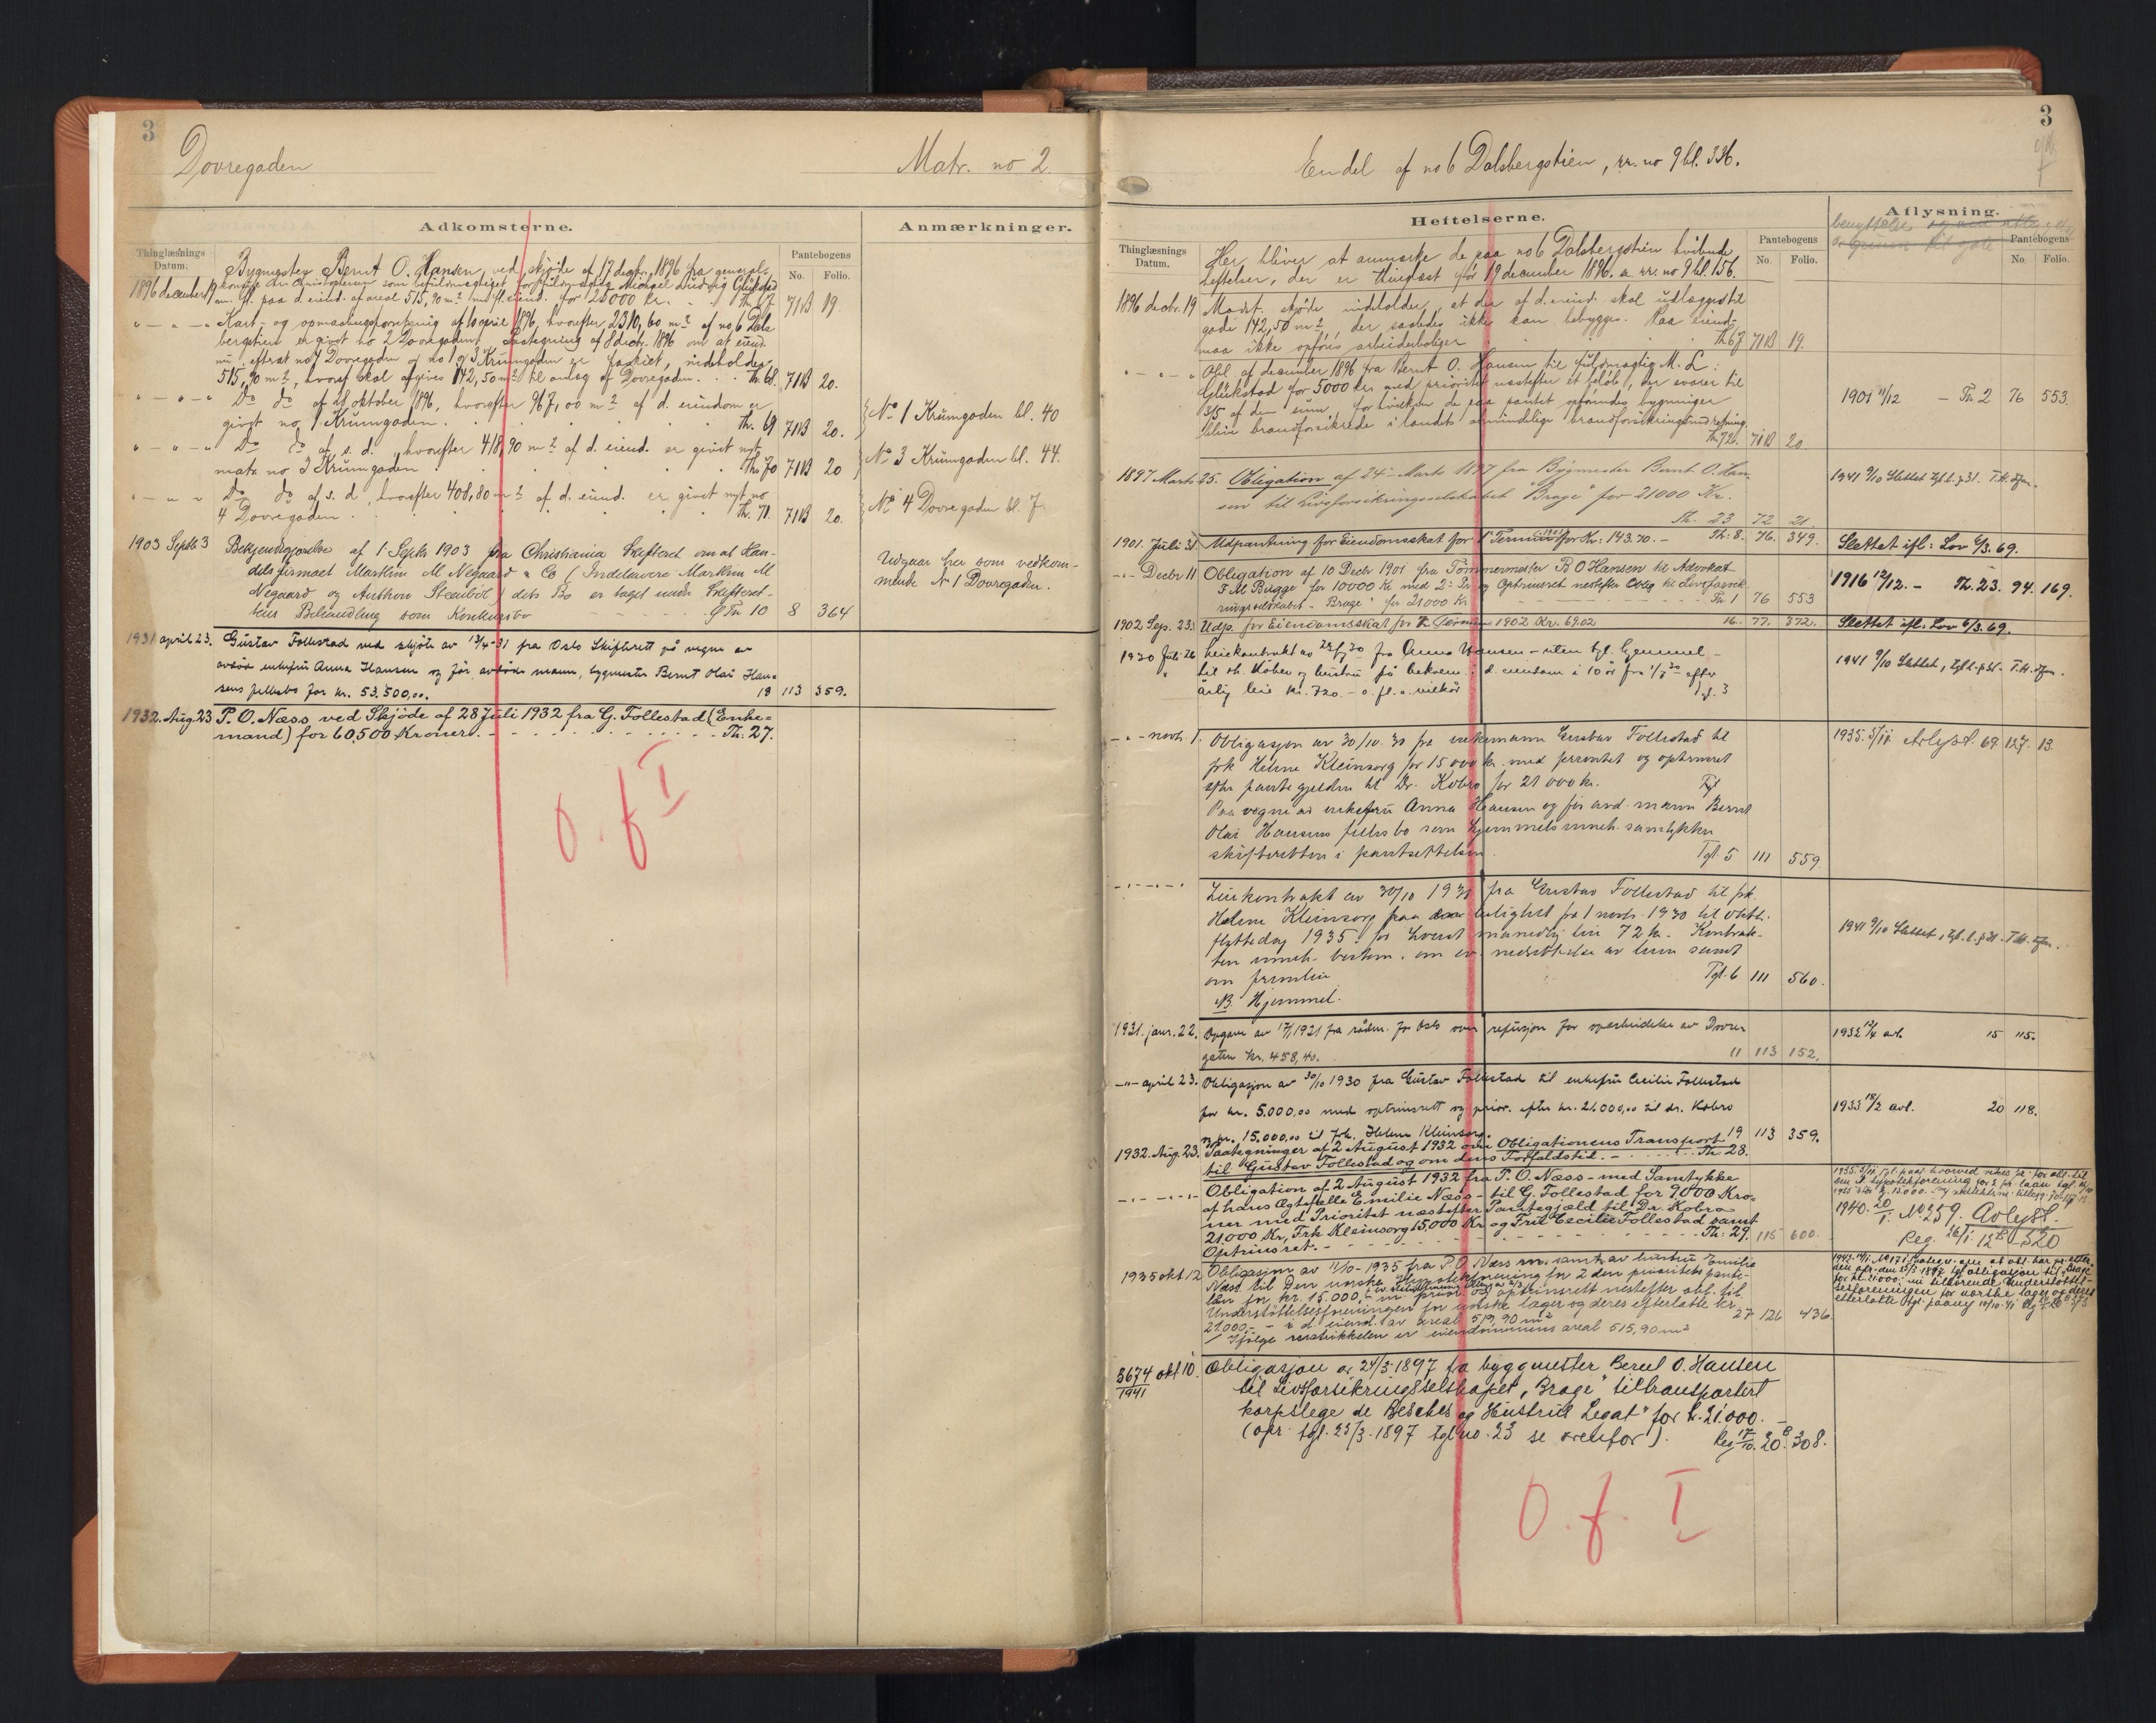 3
Dovregaden
Matr. no 2.
Adkomsterne.
Anmærkninger.
Thinglæsnings Datum.
Pantebogens
No. Folio.
Bygmester Bernt O. Hansen ved skjøde af 17 decbr. 1896 fra general-
1896 december 19 konsul Chr. Christophersen som befuldmægtiget for fuldmægtig Michael Ludvig Glükstad
m. fl. paa d. eiend. af areal 515,90 m² m. fl. eiend. for 25000 kr. Th. 67 71B 19.
" — " — " Kart- og opmaalingsforretning af 10 april 1896, hvorefter 2310,60 m² af no 6 Dals
bergstien er givet no 2 Dovregaden. Paategning af 8 decbr. 1896 om at eiend.
nu, efterat no 4 Dovregaden og no 1 og 3 Krumgaden er fraskilt, indeholder
515,90 m², hvoraf skal afgives 142,50 m² til anlæg af Dovregaden. Th. 68. 71B 20.
" — " — " Do do af 28 oktober 1896, hvorefter 967,00 m² af d. eiendom er
givet no 1 Krumgaden. Th. 69 71B 20. No 1 Krumgaden bl. 40
" — " — " Do do af s. d., hvorefter 418,90 m² af d. eiend. er givet nyt
matr. no 3 Krumgaden. Th. 70 71B 20 No 3 Krumgaden bl. 44.
" — " — " Do do af s. d., hvorefter 408,80 m² af d. eiend. er givet nyt no
4 Dovregaden. Th. 71. 71B 20. No 4 Dovregaden bl. 7.
1903 Septb 3 Bekjendtgjørelse af 1 Septb 1903 fra Christiania Skifteret om at Han-
delsfirmaet Marthin M Negaard & Co (Indehavere Marthin M
Negaard og Anthon Steenbøl) dets Bo er taget under Skifteret-
tens Behandling som Konkursbo Th 10 8 364
Udgaar her som vedkom-
mende No 1 Dovregaden.
1931 april 23. Gustav Follestad ved skjøte av 13/4-31 fra Oslo Skifterett på vegne av
avdøde enkefru Anna Hansen og før avdøde mann, bygmester Bernt Olai Han-
sens fellesbo for kr. 53.500,00. 18 113 359.
1932. Aug. 23 P. O. Næss ved Skjøde af 28 Juli 1932 fra G. Follestad (Enke-
mand) for 60,500 Kroner. Th: 27.
O. f. I
3
Endel af no 6 Dalsbergstien, rr. no 9 bl. 336.
Heftelserne.
Aflysning.
Thinglæsnings Datum.
Pantebogens
No. Folio.
Pantebogens
No. Folio.
Her bliver at anmærke de paa no 6 Dalsbergstien hvilende
heftelser, der er thinglæst før 19 december 1896. a rr. no 9 bl. 156.
1896 decbr. 19 Modst. skjøde indeholder, at der af d. eiend. skal udlægges til
gade 142,50 m², der saaledes ikke kan bebygges. Paa eiend.
maa ikke opføres arbeiderboliger. Th 67 71B 19.
" — " — " Obl. af december 1896 fra Bernt O. Hansen til fuldmægtig M. L.
Glükstad for 5000 kr. med prioritet næstefter et beløb, der svarer til
3/5 af den sum, for hvilken de paa pantet opførendes bygninger
blive brandforsikrede i landets almindelige brandforsikringsindretning.
Th 72. 71B 20
1901 11/12 — Th 2 76 553.
1897 Marts 25. Obligation af 24 Marts 1897 fra Bygmester Bernt O. Han-
sen til Livsforsikringsselskabet "Brage" for 21000 Kr.
Th. 23 72 21.
1941 9/10 Slettet tgl. l. § 31.
1901. Juli 31. Udpantning for Eiendomsskat for 1 Termin 1901 for Kr. 143.70. — Th: 8. 76. 349. Slettet ifl. Lov 6/3. 69.
— " — Decbr 11 Obligation af 10 Decbr 1901 fra Tømmermester B O Hansen til Advokat
F. M Bugge for 10000 Kr med 2den Pr. og Optrinsret næstefter Oblig til Livsforsik-
ringsselskabet "Brage" for 21000 Kr Th 1 76 553
1916 12/12. — Th. 23. 94. 169.
1902 Sep. 23. Udp. for Eiendomsskat for 2. Termin 1902 Kr. 69.02 16. 77. 372. Slettet ifl. Lov 6/3. 69.
1930 Juli 26 Leiekontrakt av 22/7 30 fra Anna Hansen — uten tgl. hjemmel —
1941 9/10 Slettet, tgl. l. § 31.
årlig leie kr. 720. — o. fl. a. vilkår
— " — novb. 1. Obligasjon av 30/10. 30 fra enkemann Gustav Follestad til
frk Helene Kleinsorg for 15 000 kr. med prioritet og optrinsret
efter pantegjelden til Dr. Kobro for 21 000 kr.
Paa vegne av enkefru Anna Hansen og før avd. mann Bernt
Olai Hansens fellesbo som hjemmelsinneh. samtykker
skifteretten i pantsettelsen. Tgl. 5 111 559.
1935. 5/11 Avlyst. 69 127. 13.
— " — " — " Leiekontrakt av 30/10 1930 fra Gustav Follestad til frk.
Helene Kleinsorg paa leilighet fra 1 novb. 1930 til oktb.
flyttedag 1935 for hvert månedlig leie 72 kr. Kontrak-
ten inneh. bestem. om ev. nedsettelse av leien samt
om fremleie Tgl. 6 111 560.
NB. Hjemmel.
1941 9/10 Slettet, tgl. l. § 31.
1931. januar. 22. Opgave av 17/1 1931 fra rådm. for Oslo over refusjon for opparbeidelse av Dovre-
gaten kr. 458,40. 11 113 152.
1932 12/4 avl. 15 115.
— " — april 23. Obligasjon av 30/10 1930 fra Gustav Follestad til enkefru Cecilie Follestad
for kr. 5.000,00 med optrinsrett og prior. efter kr. 21.000,00 til dr. Kobro
og kr. 15.000,00 til frk. Helene Kleinsorg. 19 113 359.
1933 18/2 avl. 20 118.
1932. Aug. 23. Paategninger af 2 August 1932 om Obligationens Transport
til Gustav Follestad og om dens Forfaldstid. — Th. 28.
— " — " — " Obligation af 2 August 1932 fra P. O. Næss — med Samtykke
af hans Ægtefælle Emilie Næss — til G. Follestad for 9000 Kro-
ner med Prioritet næstefter Pantegjæld til Dr. Kobro
21.000 Kr, Frk Kleinsorg 15.000 Kr og Fru Cecilie Follestad samt
Optrinsret. — Th: 29. 115 600.
1940. 20/1. No 259. Avlyst.
Reg. 26/1. 12 520
1935 okt 12 Obligasjon av 11/10-1935 fra P. O. Næss m. samt. av hustru Emilie
Næss til Den norske Hypotekforening for 2den prioritets pante-
lån for kr. 15.000,— m. prior. og optrinsrett nestefter obl. til
Understøttelsesforeningen for norske læger og deres efterlatte kr.
21.000,— i d. eiend. av areal 519,90 m² 27 126 436.
Ifølge matrikkelen er eiendommens areal 515,90 m²
3674/1941 okt 10. Obligasjon av 24/3-1897 fra byggmester Bernt O. Hansen
til Livsforsikringsselskapet "Brage" tiltransportert
korpslege de Besches og Hustrus Legat" for kr. 21.000. —
(opr. tgl. 25/3-1897 tgl no. 23 se ovenfor). Reg 17/10. 20. 308.
O. f. I